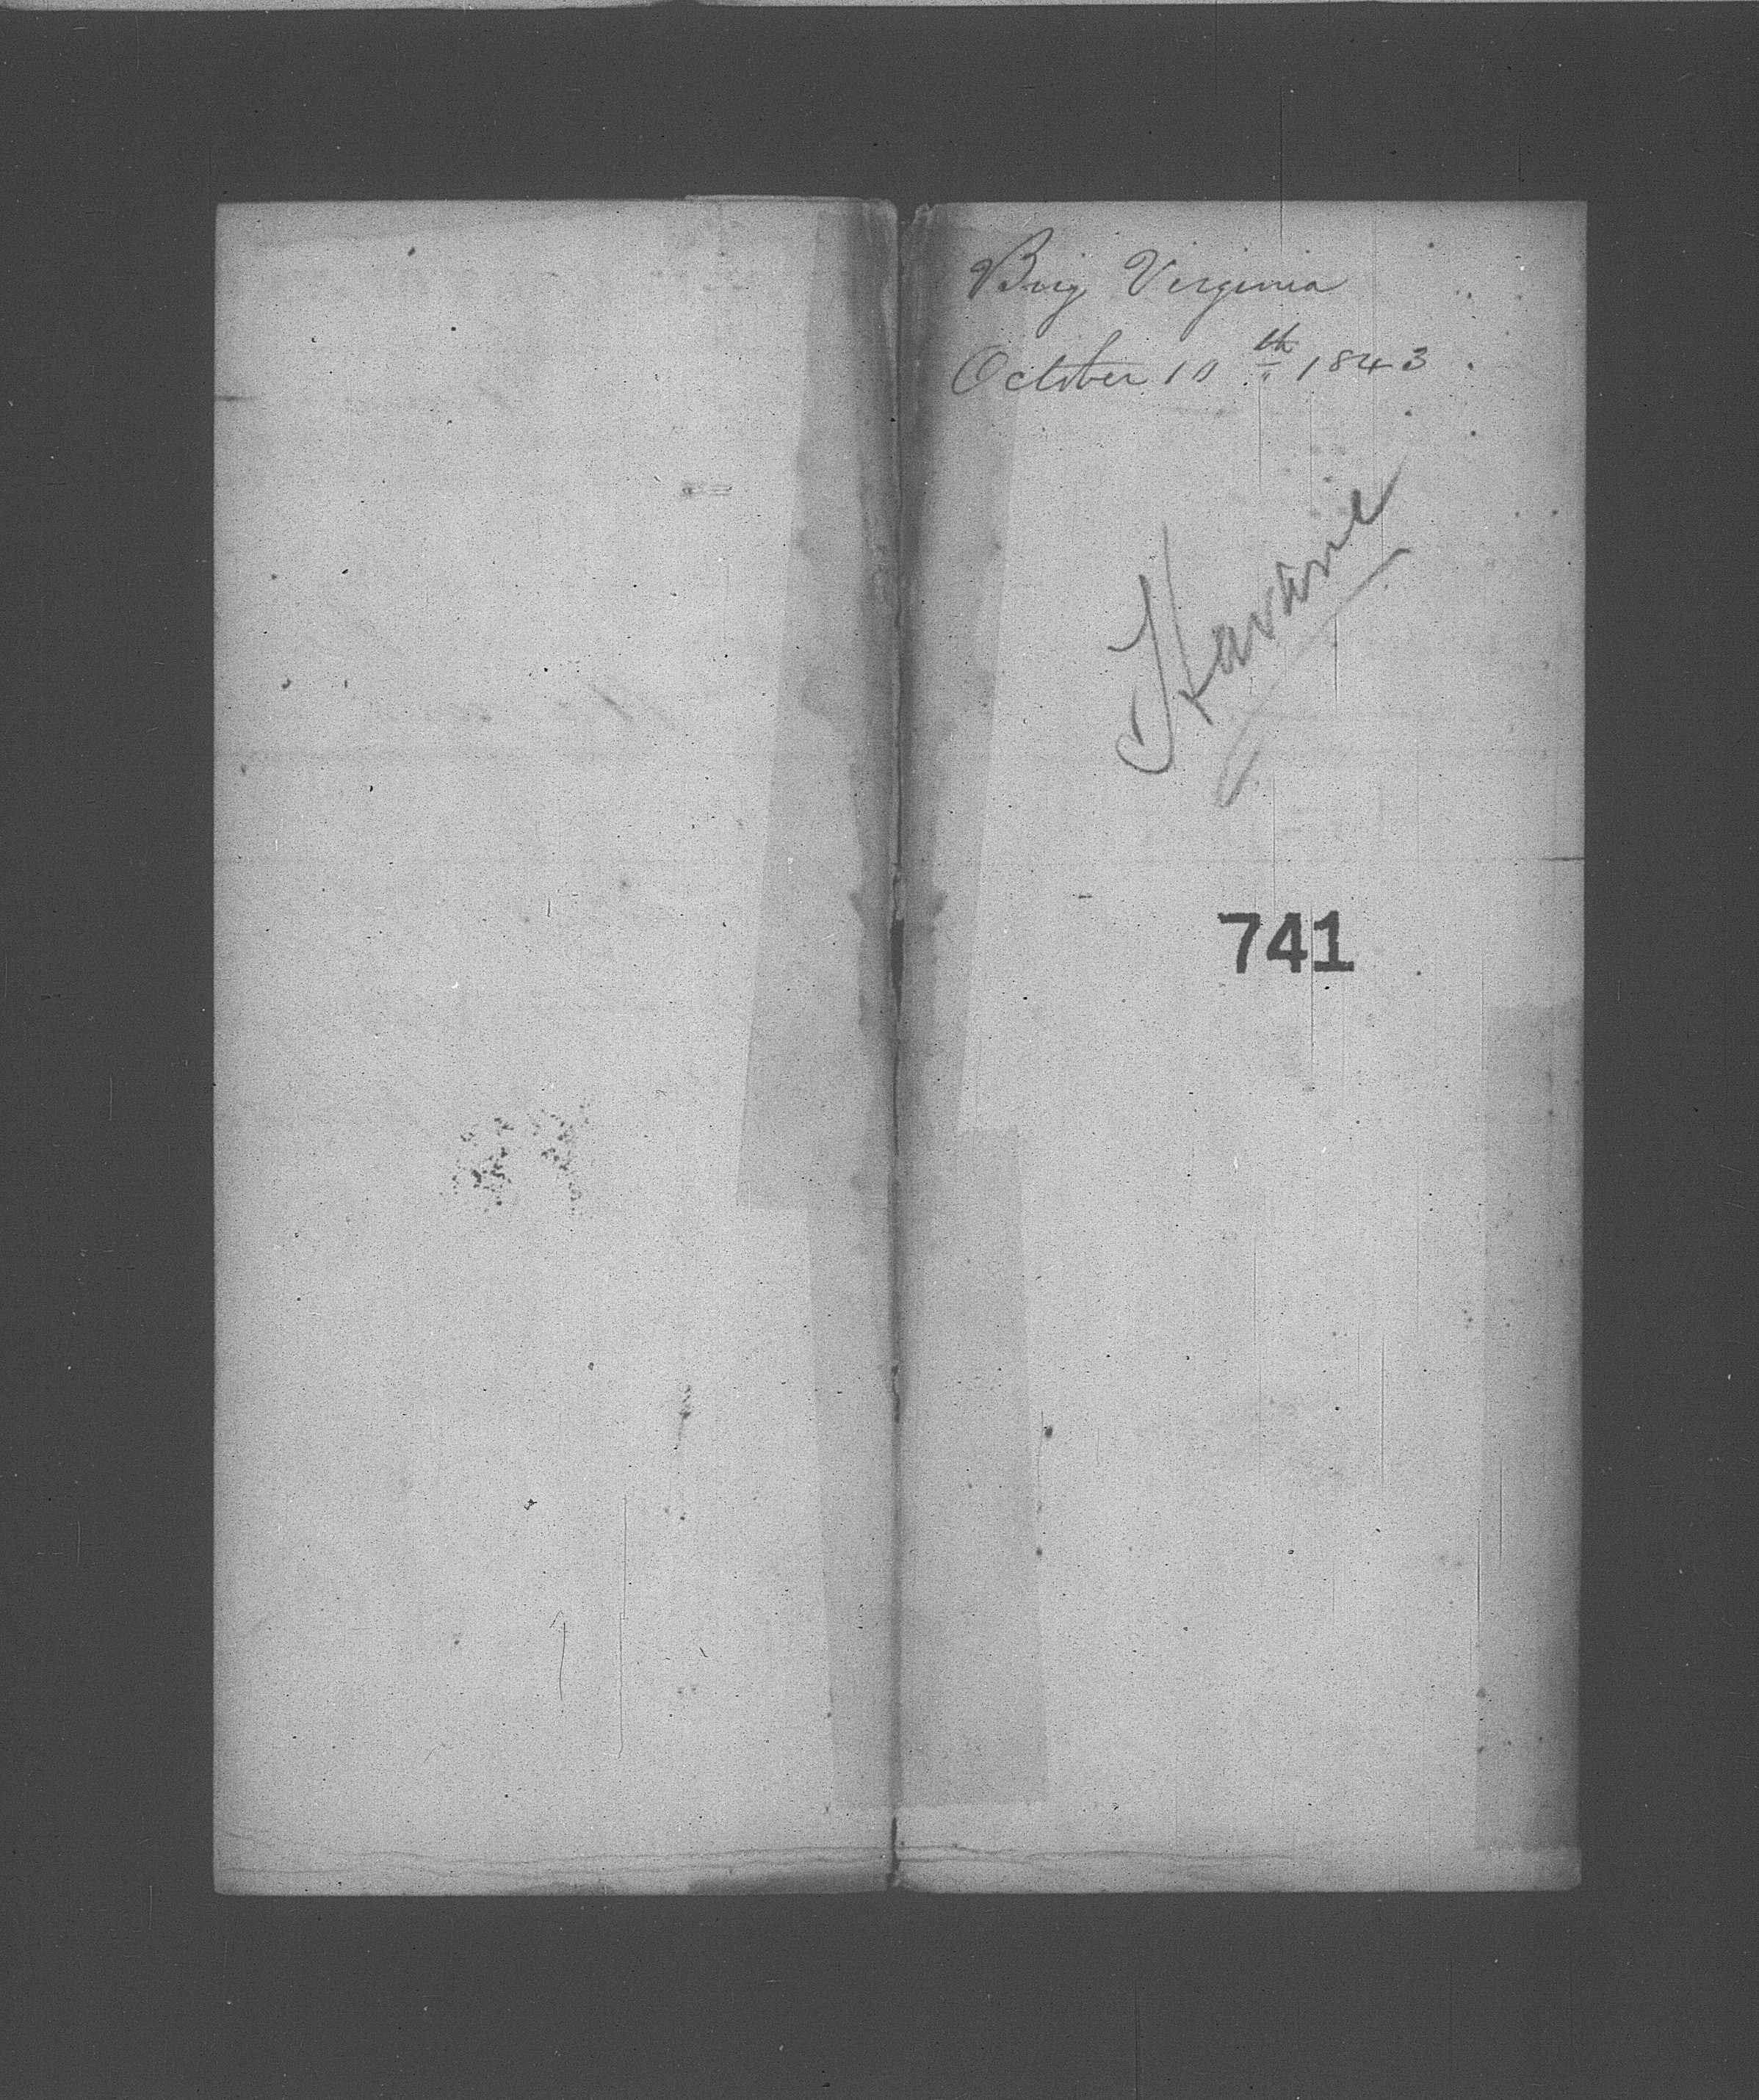 Brig Virginia
October 10th 1843
Havane
741